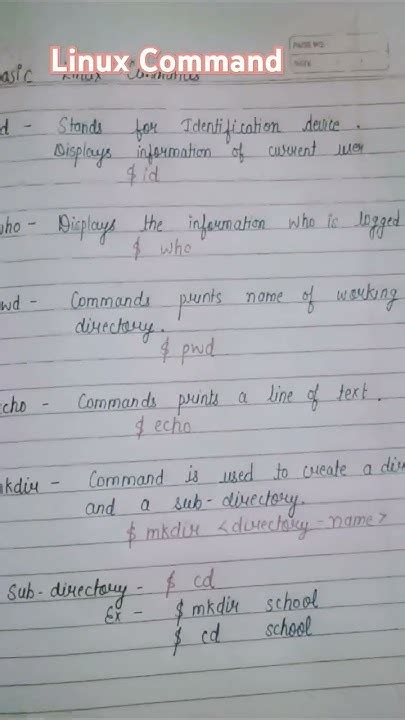 Linux Command
PAGE NO.
DATE
asic Linux Commands
d - Stands for Identification device.
Displays information of current user
$ id
who - Displays the information who is logged
$ who
wd - Commands prints name of working
directory.
$ pwd
cho - Commands prints a line of text.
$ echo
kdir - Command is used to create a dir
and a sub-directory.
$ mkdir <directory-name>
Sub-directory - $ cd
Ex - $ mkdir school
$ cd school